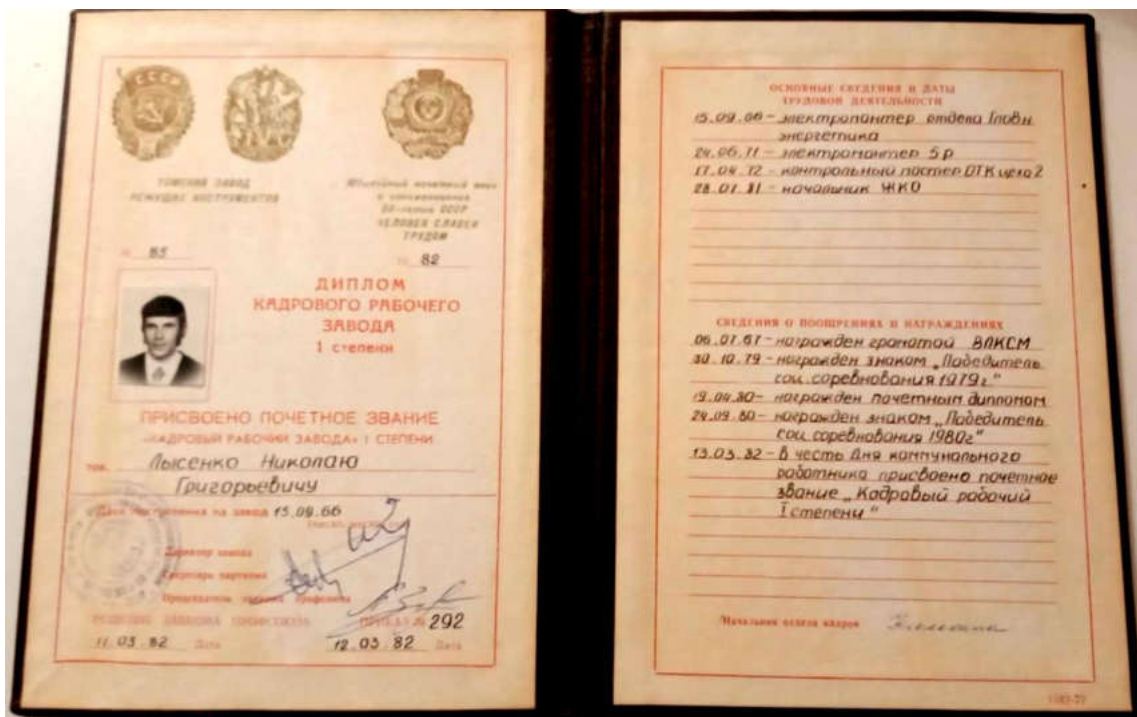 СССР
ТОМСКИЙ ЗАВОД
РЕЖУЩИХ ИНСТРУМЕНТОВ
Юбилейный почетный знак
в ознаменование
СССР
ЧЕЛОВЕК СЛАВЕН
ТРУДОМ
82
ДИПЛОМ
КАДРОВОГО РАБОЧЕГО
ЗАВОДА
1 степени
ПРИСВОЕНО ПОЧЕТНОЕ ЗВАНИЕ
«КАДРОВЫЙ РАБОЧИЙ ЗАВОДА» 1 СТЕПЕНИ
тов. Лысенко Николаю
Григорьевичу
Дата поступления на завод 15.09.66
Директор завода
Секретарь парткома
Председатель завкома профсоюза
РЕШЕНИЕ ЗАВКОМА ПРОФСОЮЗА
ПРИКАЗ № 292
11.03.82 Дата
12.03.82 Дата
ОСНОВНЫЕ СВЕДЕНИЯ И ДАТЫ
ТРУДОВОЙ ДЕЯТЕЛЬНОСТИ
15.09.66 - электромонтер отдела Главн.
энергетика
24.06.71 - электромонтер 5р
17.04.72 - контрольный мастер ОТК цеха 2
28.01.81 - начальник ЖКО
СВЕДЕНИЯ О ПООЩРЕНИЯХ И НАГРАЖДЕНИЯХ
06.07.67 - награжден грамотой ВЛКСМ
30.10.79 - награжден знаком „Победитель
соц. соревнования 1979г."
19.04.80 - награжден почетным дипломом
24.09.80 - награжден знаком „Победитель
соц. соревнования 1980г"
13.03.82 - В честь Дня коммунального
работника присвоено почетное
звание „Кадровый рабочий
I степени"
Начальник отдела кадров